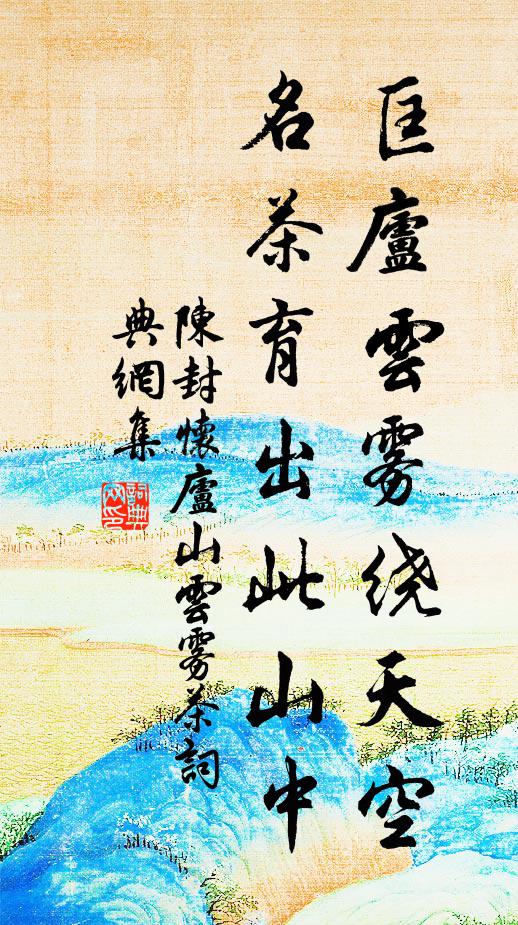 匡廬雲雾绕天空
名茶育出此山中
陳封懷廬山雲雾茶詞
典網集
詞典
网印